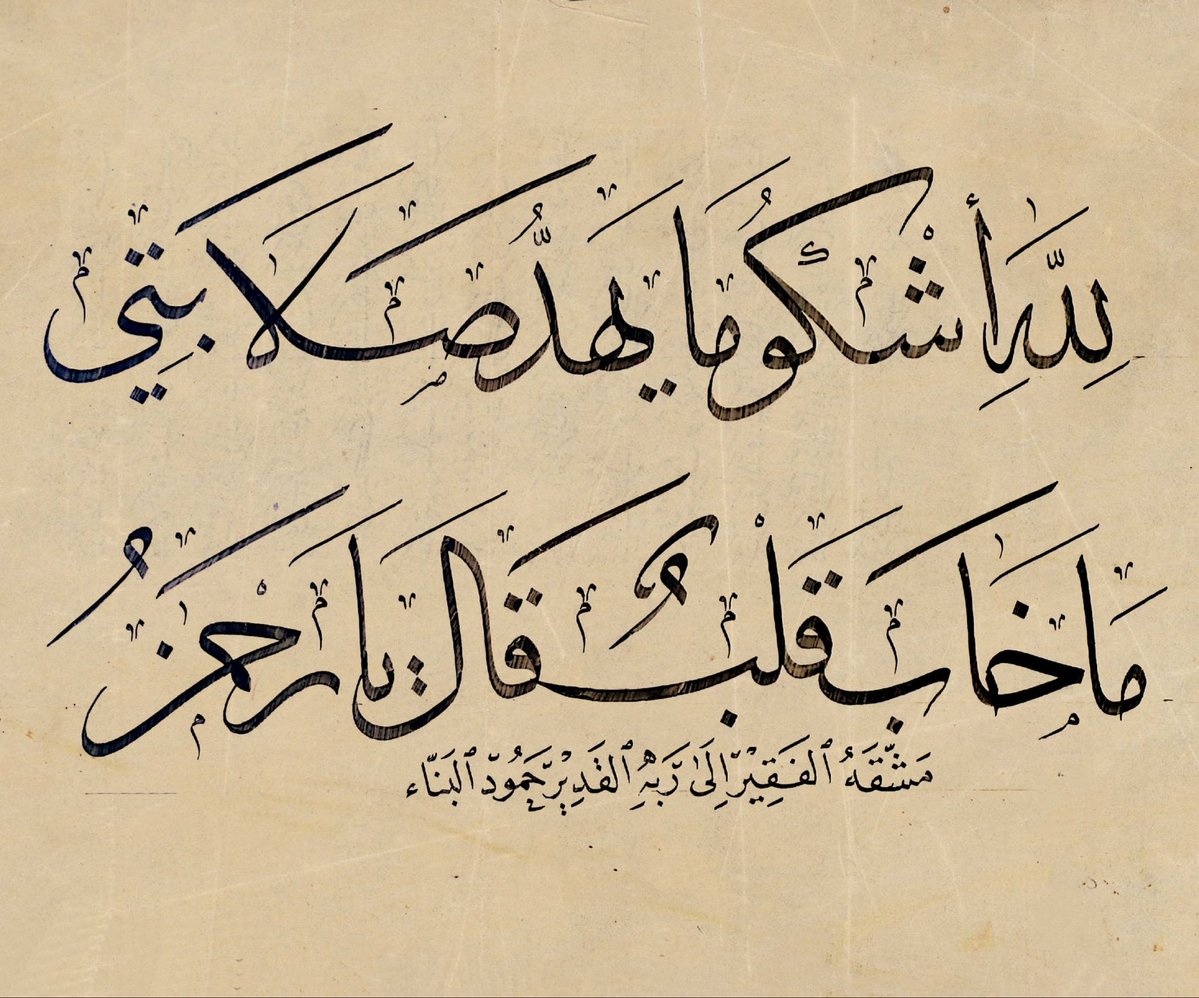 لِلَّهِ أَشْكُو مَا يَهُدُّ صَلَابَتِي
مَا خَابَ قَلْبٌ قَالَ يَا رَحْمٰنُ
مَشَقَهُ ٱلفَقِيْرُ إِلَى رَبِّهِ ٱلقَدِيْرِ حَمُود ٱلبَنَّاء